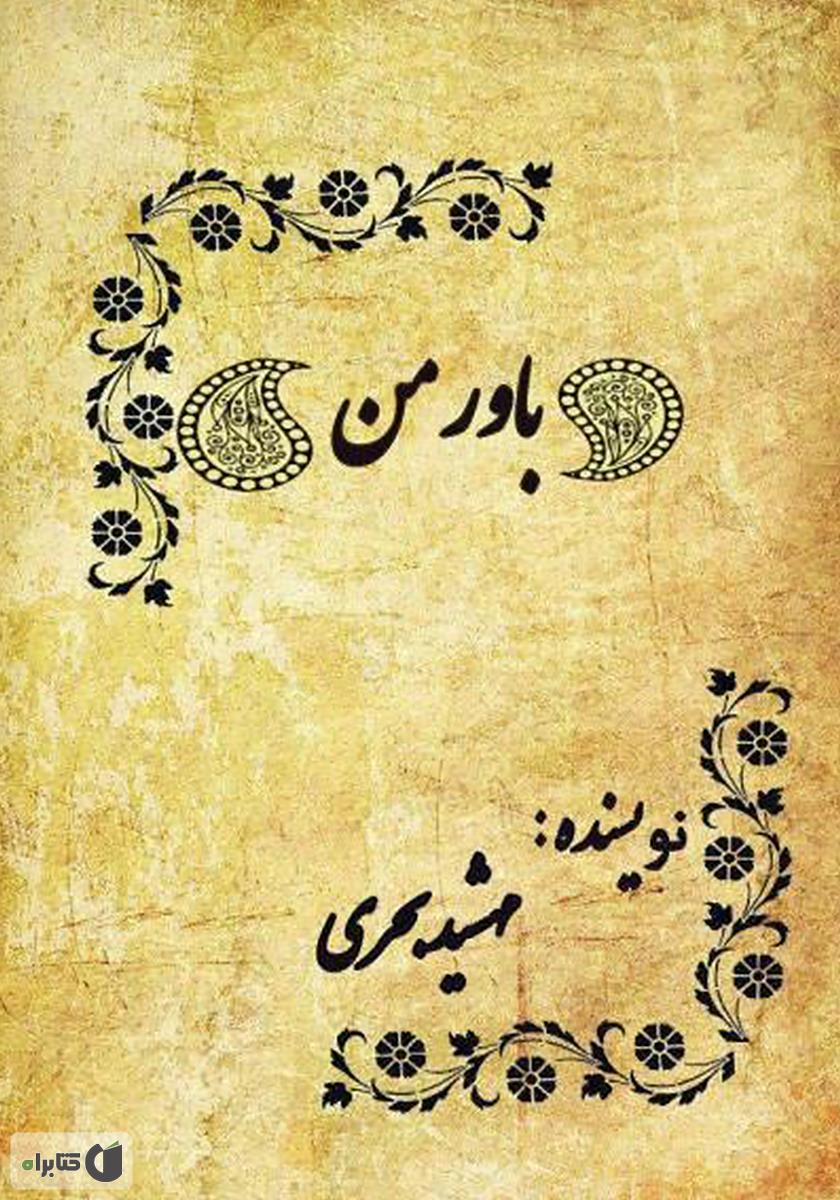 باور من
نویسنده:
مهشید بحری
کتابراه